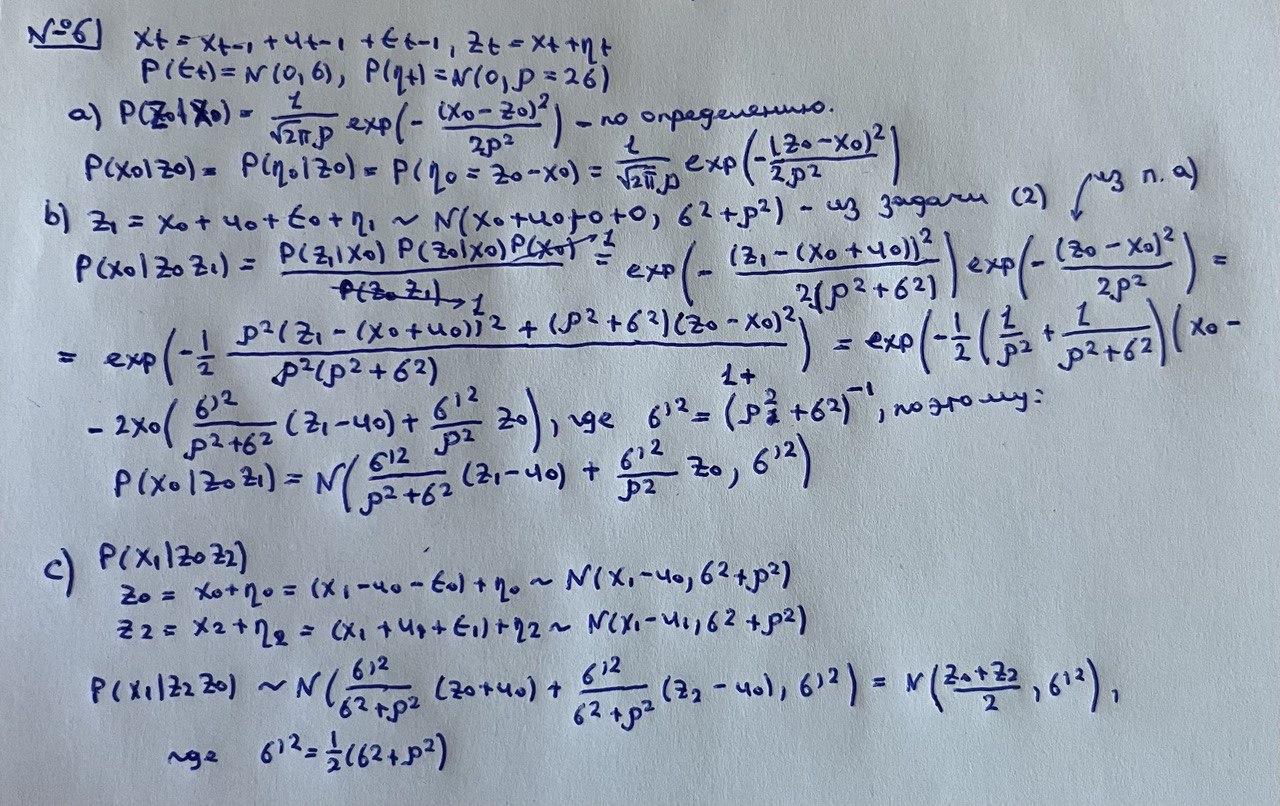 №6) xt = xt-1 + ut-1 + Et-1, zt = xt + ηt
P(Et) = N(0, б), P(ηt) = N(0, ρ = 2б)
a) P(z0|x0) = 1/(√2π ρ) exp(- (x0 - z0)²/(2ρ²)) - по определению.
P(x0|z0) = P(η0|z0) = P(η0 = z0 - x0) = 1/(√2π ρ) exp(- (z0 - x0)²/(2ρ²))
b) z1 = x0 + u0 + E0 + η1 ~ N(x0 + u0 + 0 + 0, б² + ρ²) - из задачи (2) из п. a)
P(x0|z0 z1) = P(z1|x0) P(z0|x0) P(x0)→1 / P(z0 z1)→1 = exp(- (z1 - (x0 + u0))²/(2(ρ² + б²))) exp(- (z0 - x0)²/(2ρ²)) =
= exp(- 1/2 (ρ²(z1 - (x0 + u0))² + (ρ² + б²)(z0 - x0)²)/(ρ²(ρ² + б²))) = exp(- 1/2 (1/ρ² + 1/(ρ² + б²)) (x0 -
1+
- 2x0 (б'²/(ρ² + б²) (z1 - u0) + б'²/ρ² z0), где б'² = (ρ² + б²)⁻¹, поэтому:
P(x0|z0 z1) = N(б'²/(ρ² + б²) (z1 - u0) + б'²/ρ² z0, б'²)
c) P(x1|z0 z2)
z0 = x0 + η0 = (x1 - u0 - E0) + η0 ~ N(x1 - u0, б² + ρ²)
z2 = x2 + η2 = (x1 + u1 + E1) + η2 ~ N(x1 - u1, б² + ρ²)
P(x1|z2 z0) ~ N(б'²/(б² + ρ²) (z0 + u0) + б'²/(б² + ρ²) (z2 - u0), б'²) = N((z0 + z2)/2, б'²),
где б'² = 1/2 (б² + ρ²)